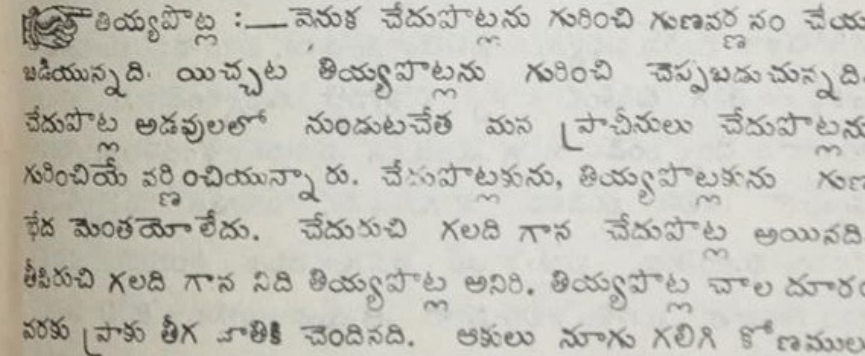 తియ్యపొట్ల :— వెనుక చేదుపొట్లను గురించి గుణవర్ణనం చేయ
బడియున్నది. యిచ్చట తియ్యపొట్లను గురించి చెప్పబడుచున్నది
చేదుపొట్ల అడవులలో నుండుటచేత మన ప్రాచీనులు చేదుపొట్లను
గురించియే వర్ణించియున్నారు. చేదుపొట్లకును, తియ్యపొట్లకును గుణ
భేద మెంతయో లేదు. చేదురుచి గలది గాన చేదుపొట్ల అయినది
తీపిరుచి గలది గాన నిది తియ్యపొట్ల అనిరి. తియ్యపొట్ల చాల దూరం
వరకు ప్రాకు తీగ జాతికి చెందినది. ఆకులు నూగు గలిగి కోణముల